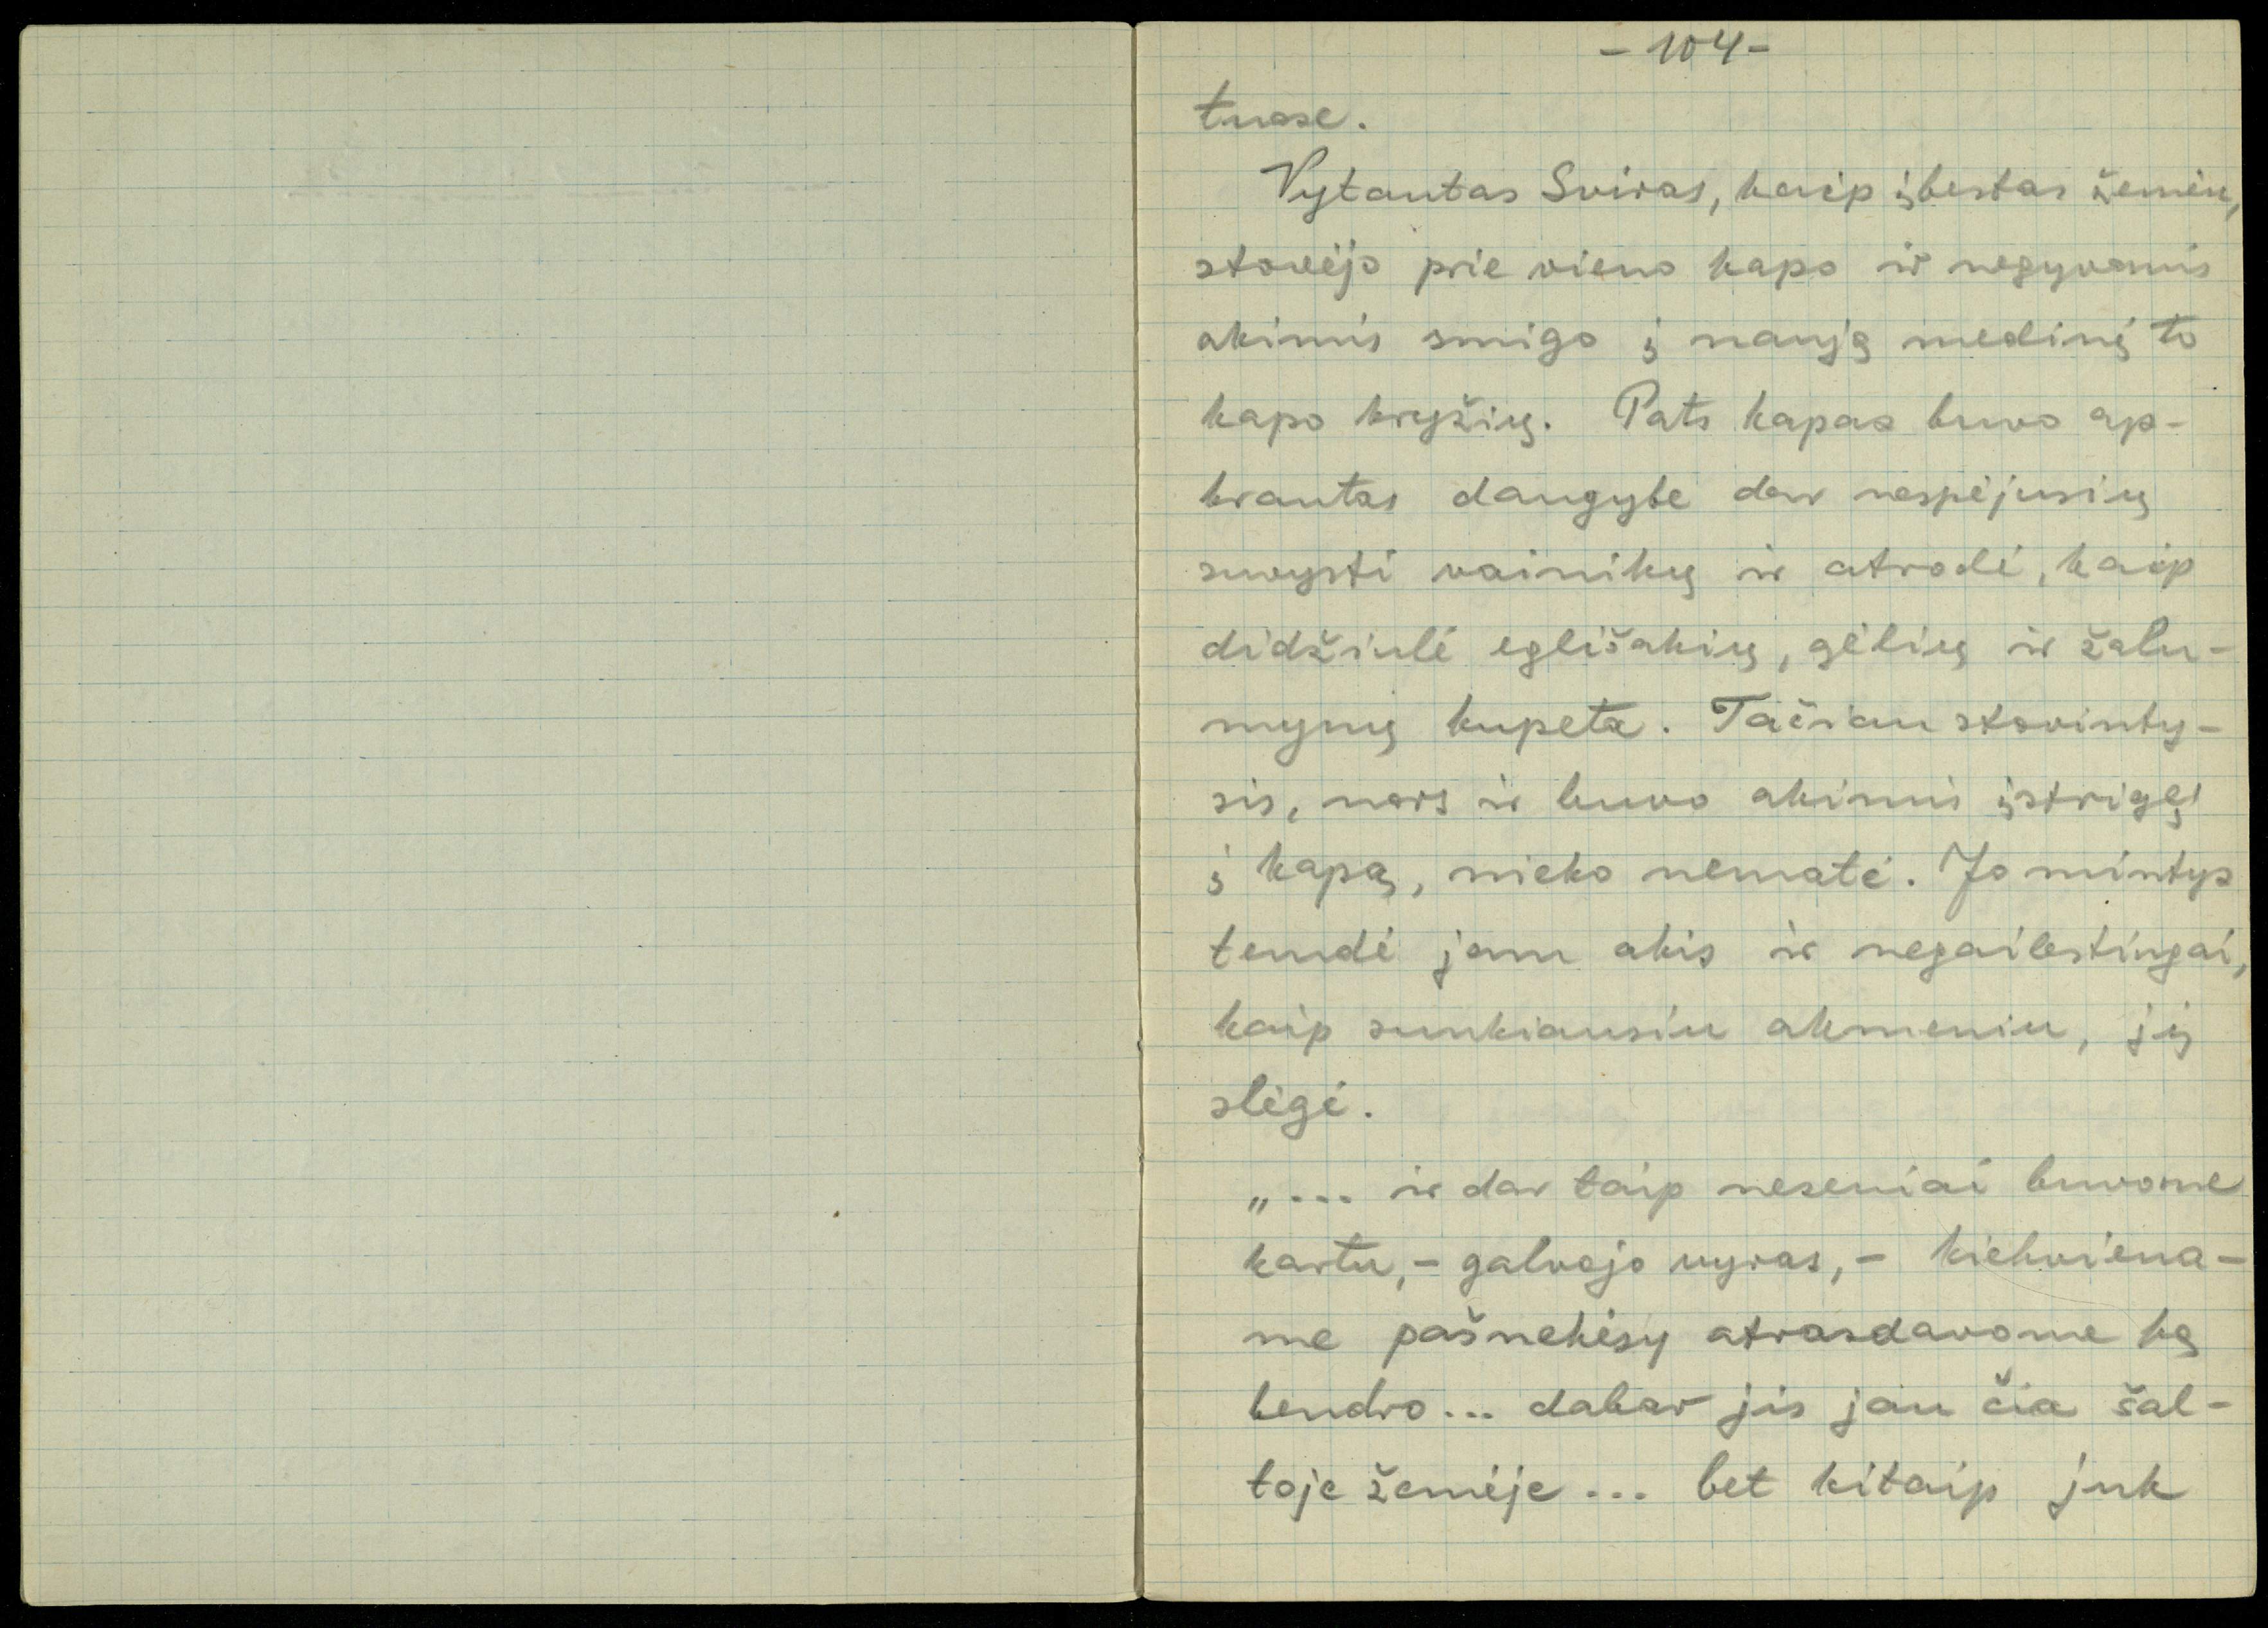 - 104 -
tuose.
Vytautas Sviras, kaip įbestas žemėn,
stovėjo prie vieno kapo ir negyvomis
akimis smigo į naują medinį to
kapo kryžių. Pats kapas buvo ap-
krautas daugybe dar nespėjusių
suvysti vainikų ir atrodė, kaip
didžiulė eglišakių, gėlių ir žalu-
mynų kupeta. Tačiau stovinty-
sis, nors ir buvo akimis įstrigęs
į kapą, nieko nematė. Jo mintys
temdė jam akis ir negailestingai,
kaip sunkiausiu akmeniu, jį
slėgė.
„... ir dar taip neseniai buvome
kartu,- galvojo vyras,- kiekviena-
me pašnekėsy atrasdavome ką
bendro... dabar jis jau čia šal-
toje žemėje... bet kitaip juk